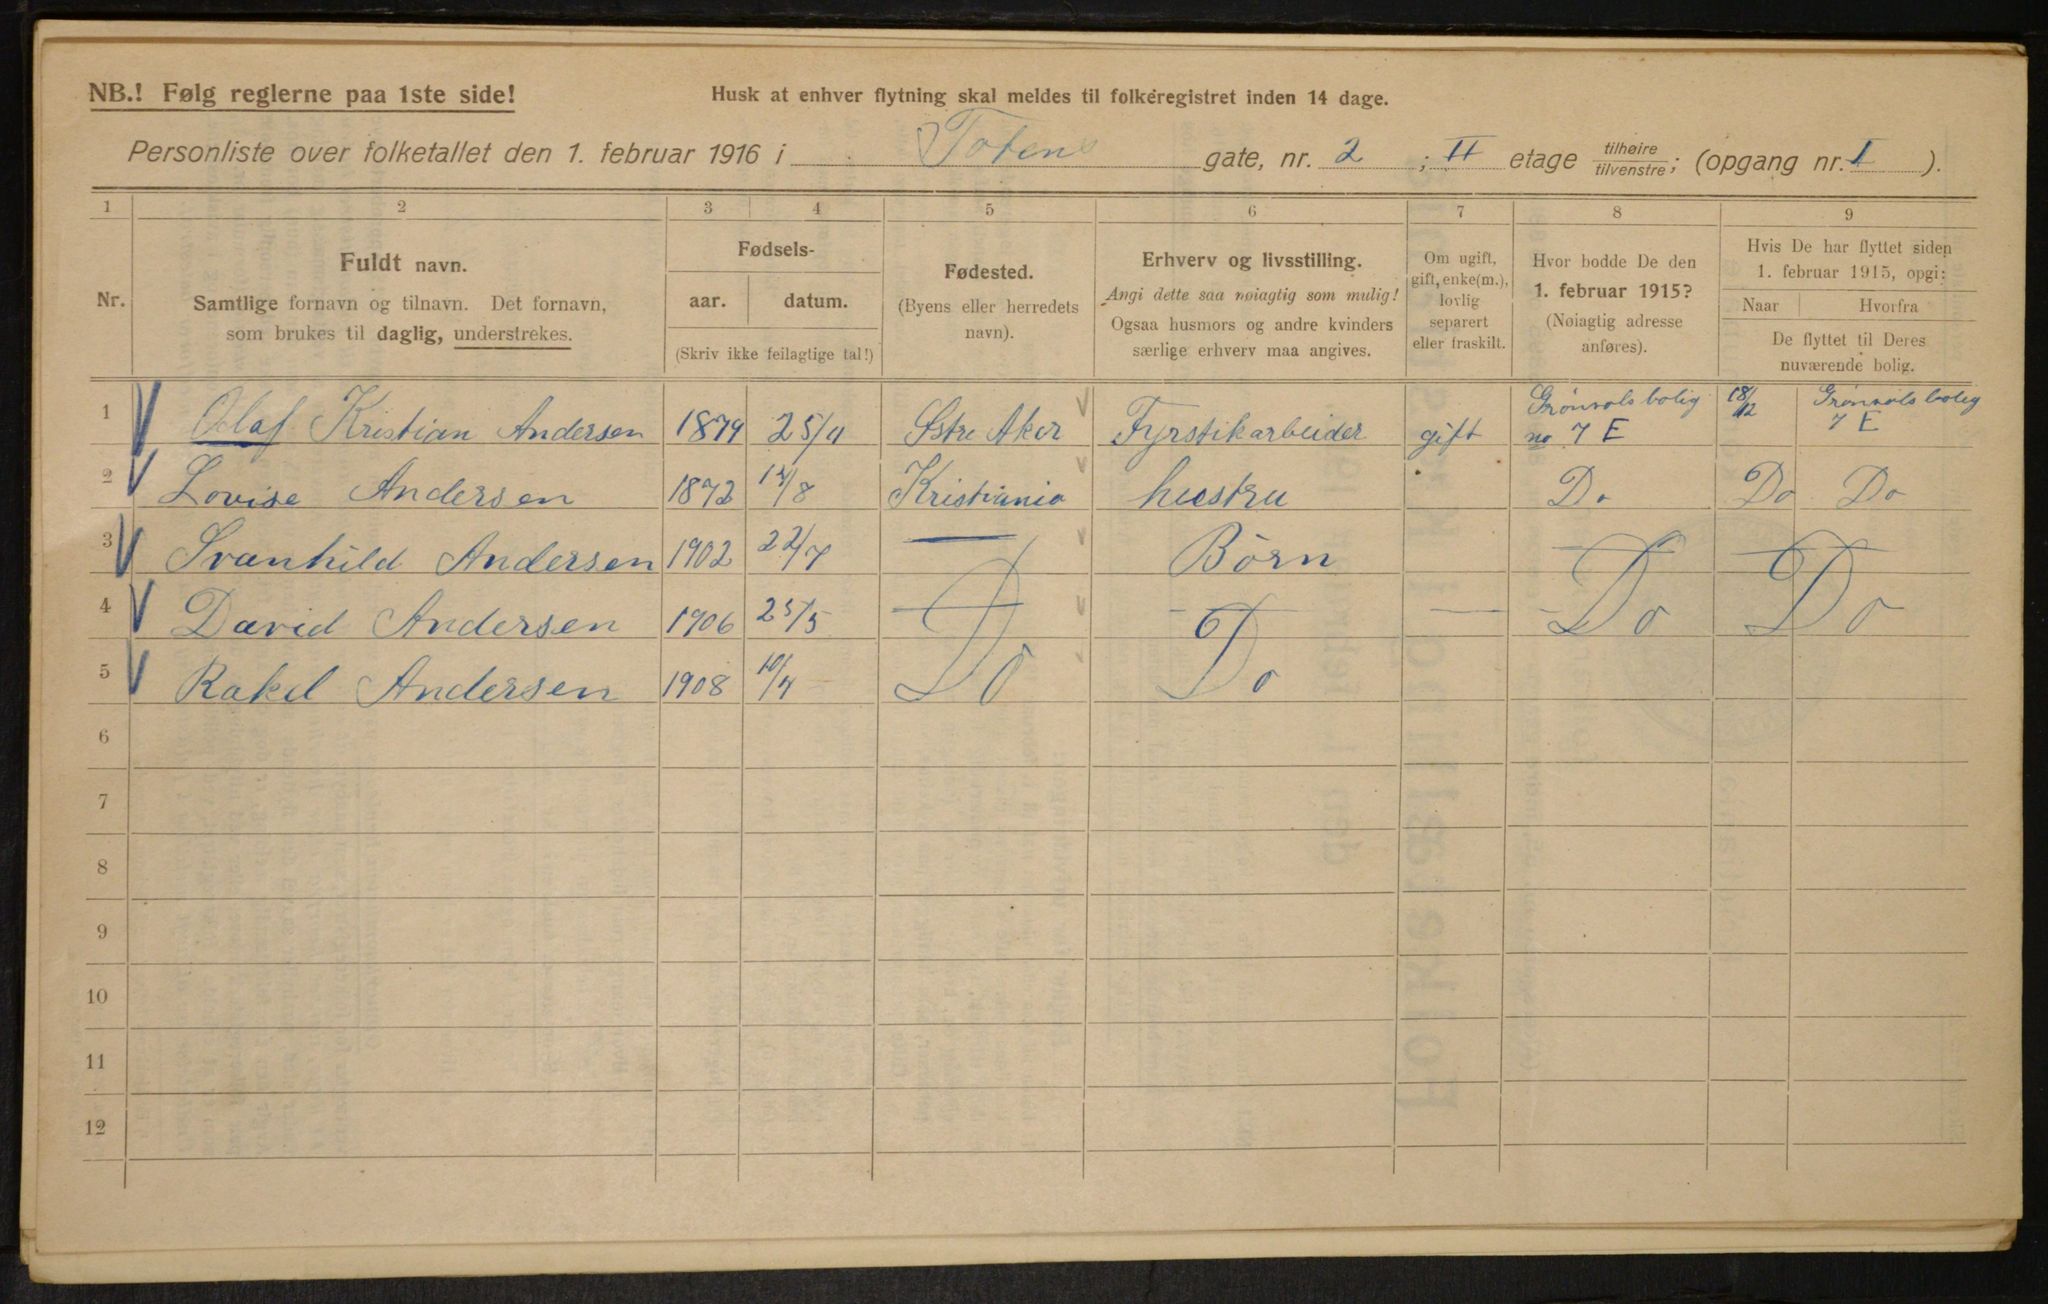 NB.! Følg reglerne paa 1ste side!
Husk at enhver flytning skal meldes til folkeregistret inden 14 dage.
Personliste over folketallet den 1. februar 1916 i Totens gate, nr. 2 ; II etage tilhøire/tilvenstre; (opgang nr. I ).
1 2 3 4 5 6 7 8 9
Nr.
Fuldt navn.
Samtlige fornavn og tilnavn. Det fornavn,
som brukes til daglig, understrekes.
Fødsels-
aar. datum.
(Skriv ikke feilagtige tal!)
Fødested.
(Byens eller herredets
navn).
Erhverv og livsstilling.
Angi dette saa nøiagtig som mulig!
Ogsaa husmors og andre kvinders
særlige erhverv maa angives.
Om ugift,
gift, enke(m.),
lovlig
separert
eller fraskilt.
Hvor bodde De den
1. februar 1915?
(Nøiagtig adresse
anføres).
Hvis De har flyttet siden
1. februar 1915, opgi:
Naar Hvorfra
De flyttet til Deres
nuværende bolig.
1 Olaf Kristian Andersen 1879 25/4 Østre Aker Fyrstikarbeider gift Grønvols bolig no 7 E 18/12 Grønvols bolig 7 E
2 Lovise Andersen 1872 14/8 Kristiania hustru Do Do Do
3 Svanhild Andersen 1902 22/7 — Børn
4 David Andersen 1906 25/5 Do Do Do
5 Rakel Andersen 1908 10/4 Do
6
7
8
9
10
11
12